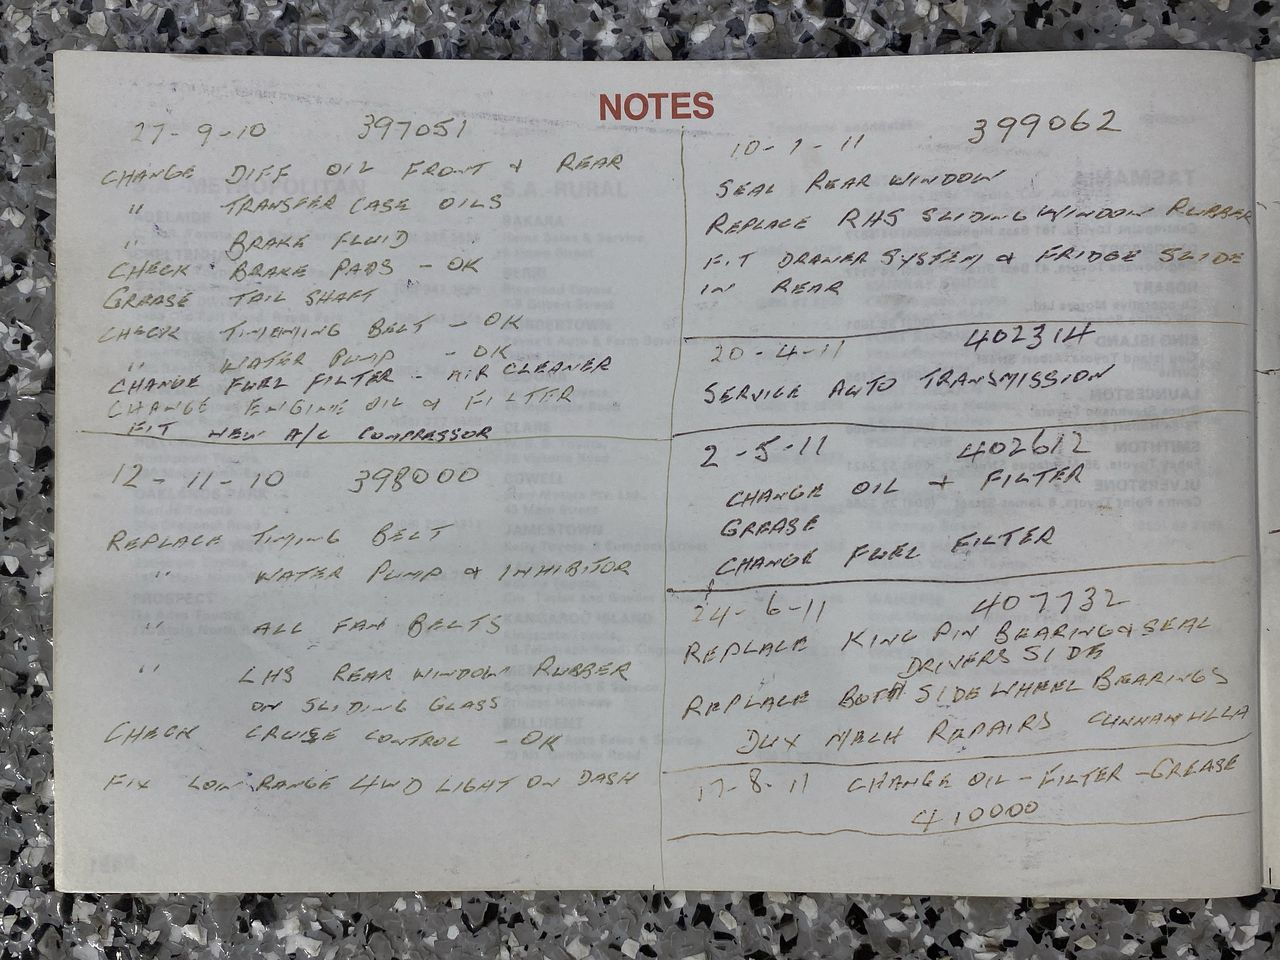 NOTES
27-9-10 397051
CHANGE DIFF OIL FRONT & REAR
" TRANSFER CASE OILS
" BRAKE FLUID
CHECK BRAKE PADS - OK
GREASE TAIL SHAFT
CHECK TIMEMING BELT - OK
" WATER PUMP - OK
CHANGE FUEL FILTER - AIR CLEANER
CHANGE ENGINE OIL & FILTER
FIT NEW A/C COMPRESSOR
12-11-10 398000
REPLACE TIMING BELT
" WATER PUMP & INHIBITOR
" ALL FAN BELTS
" LHS REAR WINDOW RUBBER
ON SLIDING GLASS
CHECK CRUISE CONTROL - OK
FIX LOW RANGE 4WD LIGHT ON DASH
10-1-11 399062
SEAL REAR WINDOW
REPLACE RHS SLIDING WINDOW RUBBER
FIT DRAWER SYSTEM & FRIDGE SLIDE
IN REAR
20-4-11 402314
SERVICE AUTO TRANSMISSION
2-5-11 402612
CHANGE OIL + FILTER
GREASE
CHANGE FUEL FILTER
24-6-11 407732
REPLACE KING PIN BEARING & SEAL
DRIVERS SIDE
REPLACE BOTH SIDE WHEEL BEARINGS
DUX MECH REPAIRS CUNNAMULLA
17-8-11 CHANGE OIL - FILTER - GREASE
410000